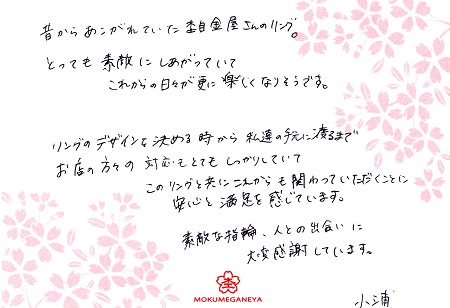 昔からあこがれていた杢目金屋さんのリング。
とっても素敵にしあがっていて
これからの日々が更に楽しくなりそうです。
リングのデザインを決める時から私達の手元に渡るまで
お店の方々の対応もとてもしっかりしていて
このリングと共にこれからも関わっていただくことに
安心と満足を感じています。
素敵な指輪、人との出会いに
大変感謝しています。
杢
MOKUMEGANEYA
小浦